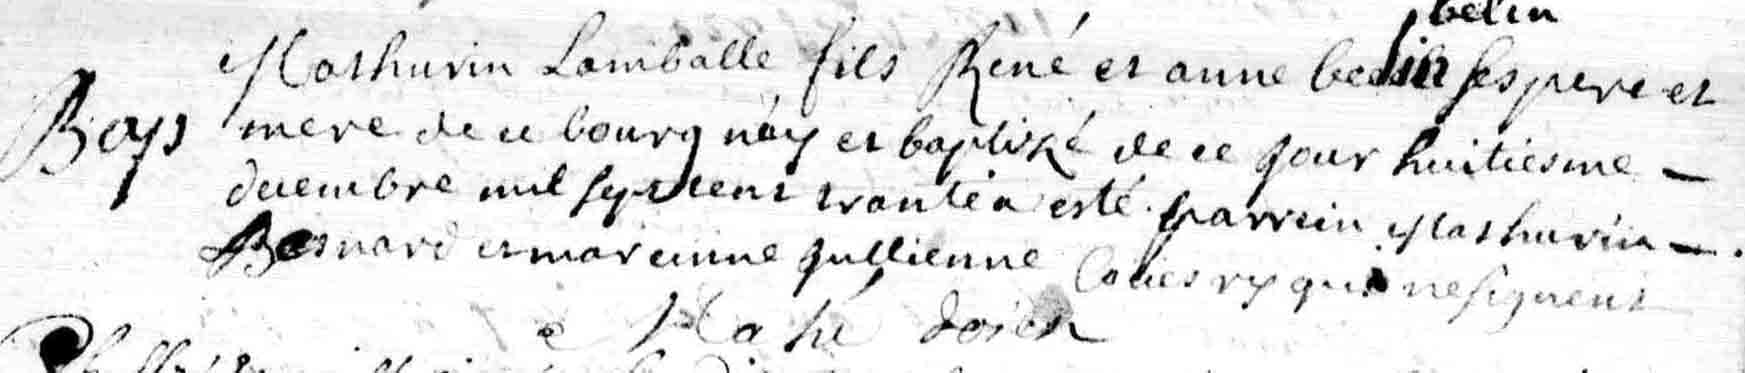 belin
Mathurin Lamballe fils René et anne belin ses pere et
Bap mere de ce bourg néz et baptizé de ce jour huitiesme
decembre mil sept cent trante a esté parrein Mathurin
Besnard et mareinne Jullienne qui ne signent
Mahé